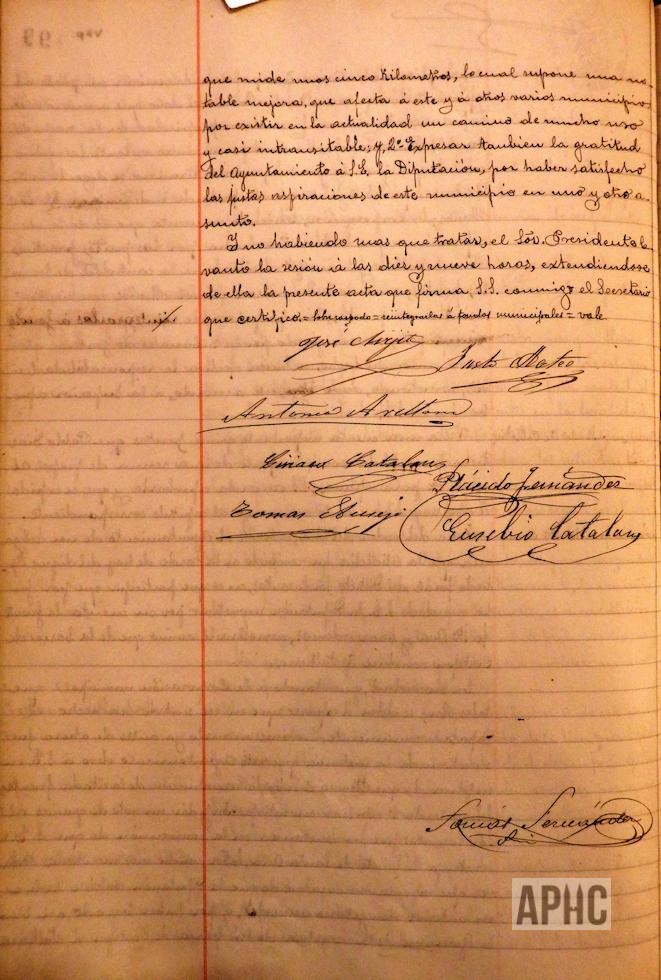 que mide unos cinco Kilometros, lo cual supone una no-
table mejora, que afecta á este y á otros varios municipios
por existir en la actualidad un camino de mucho uso
y casi intransitable; y, 2º Expresar tambien la gratitud
del Ayuntamiento á S.E. la Diputación, por haber satisfecho
las justas aspiraciones de este municipio en uno y otro a-
sunto.
Y no habiendo mas que tratar, el Sor. Presidente le-
vantó la sesión á las diez y nueve horas, extendiendose
de ella la presente acta que firma S.S. conmigo el Secretario
que certifico.= sobreraspado = reintegrarlas á fondos municipales = vale
José
Justo Mateo
Antonio Arellano
Ciriaco Catalan
Plácido Fernández
Tomas
Eusebio Catalan
Tomás Fernández
APHC